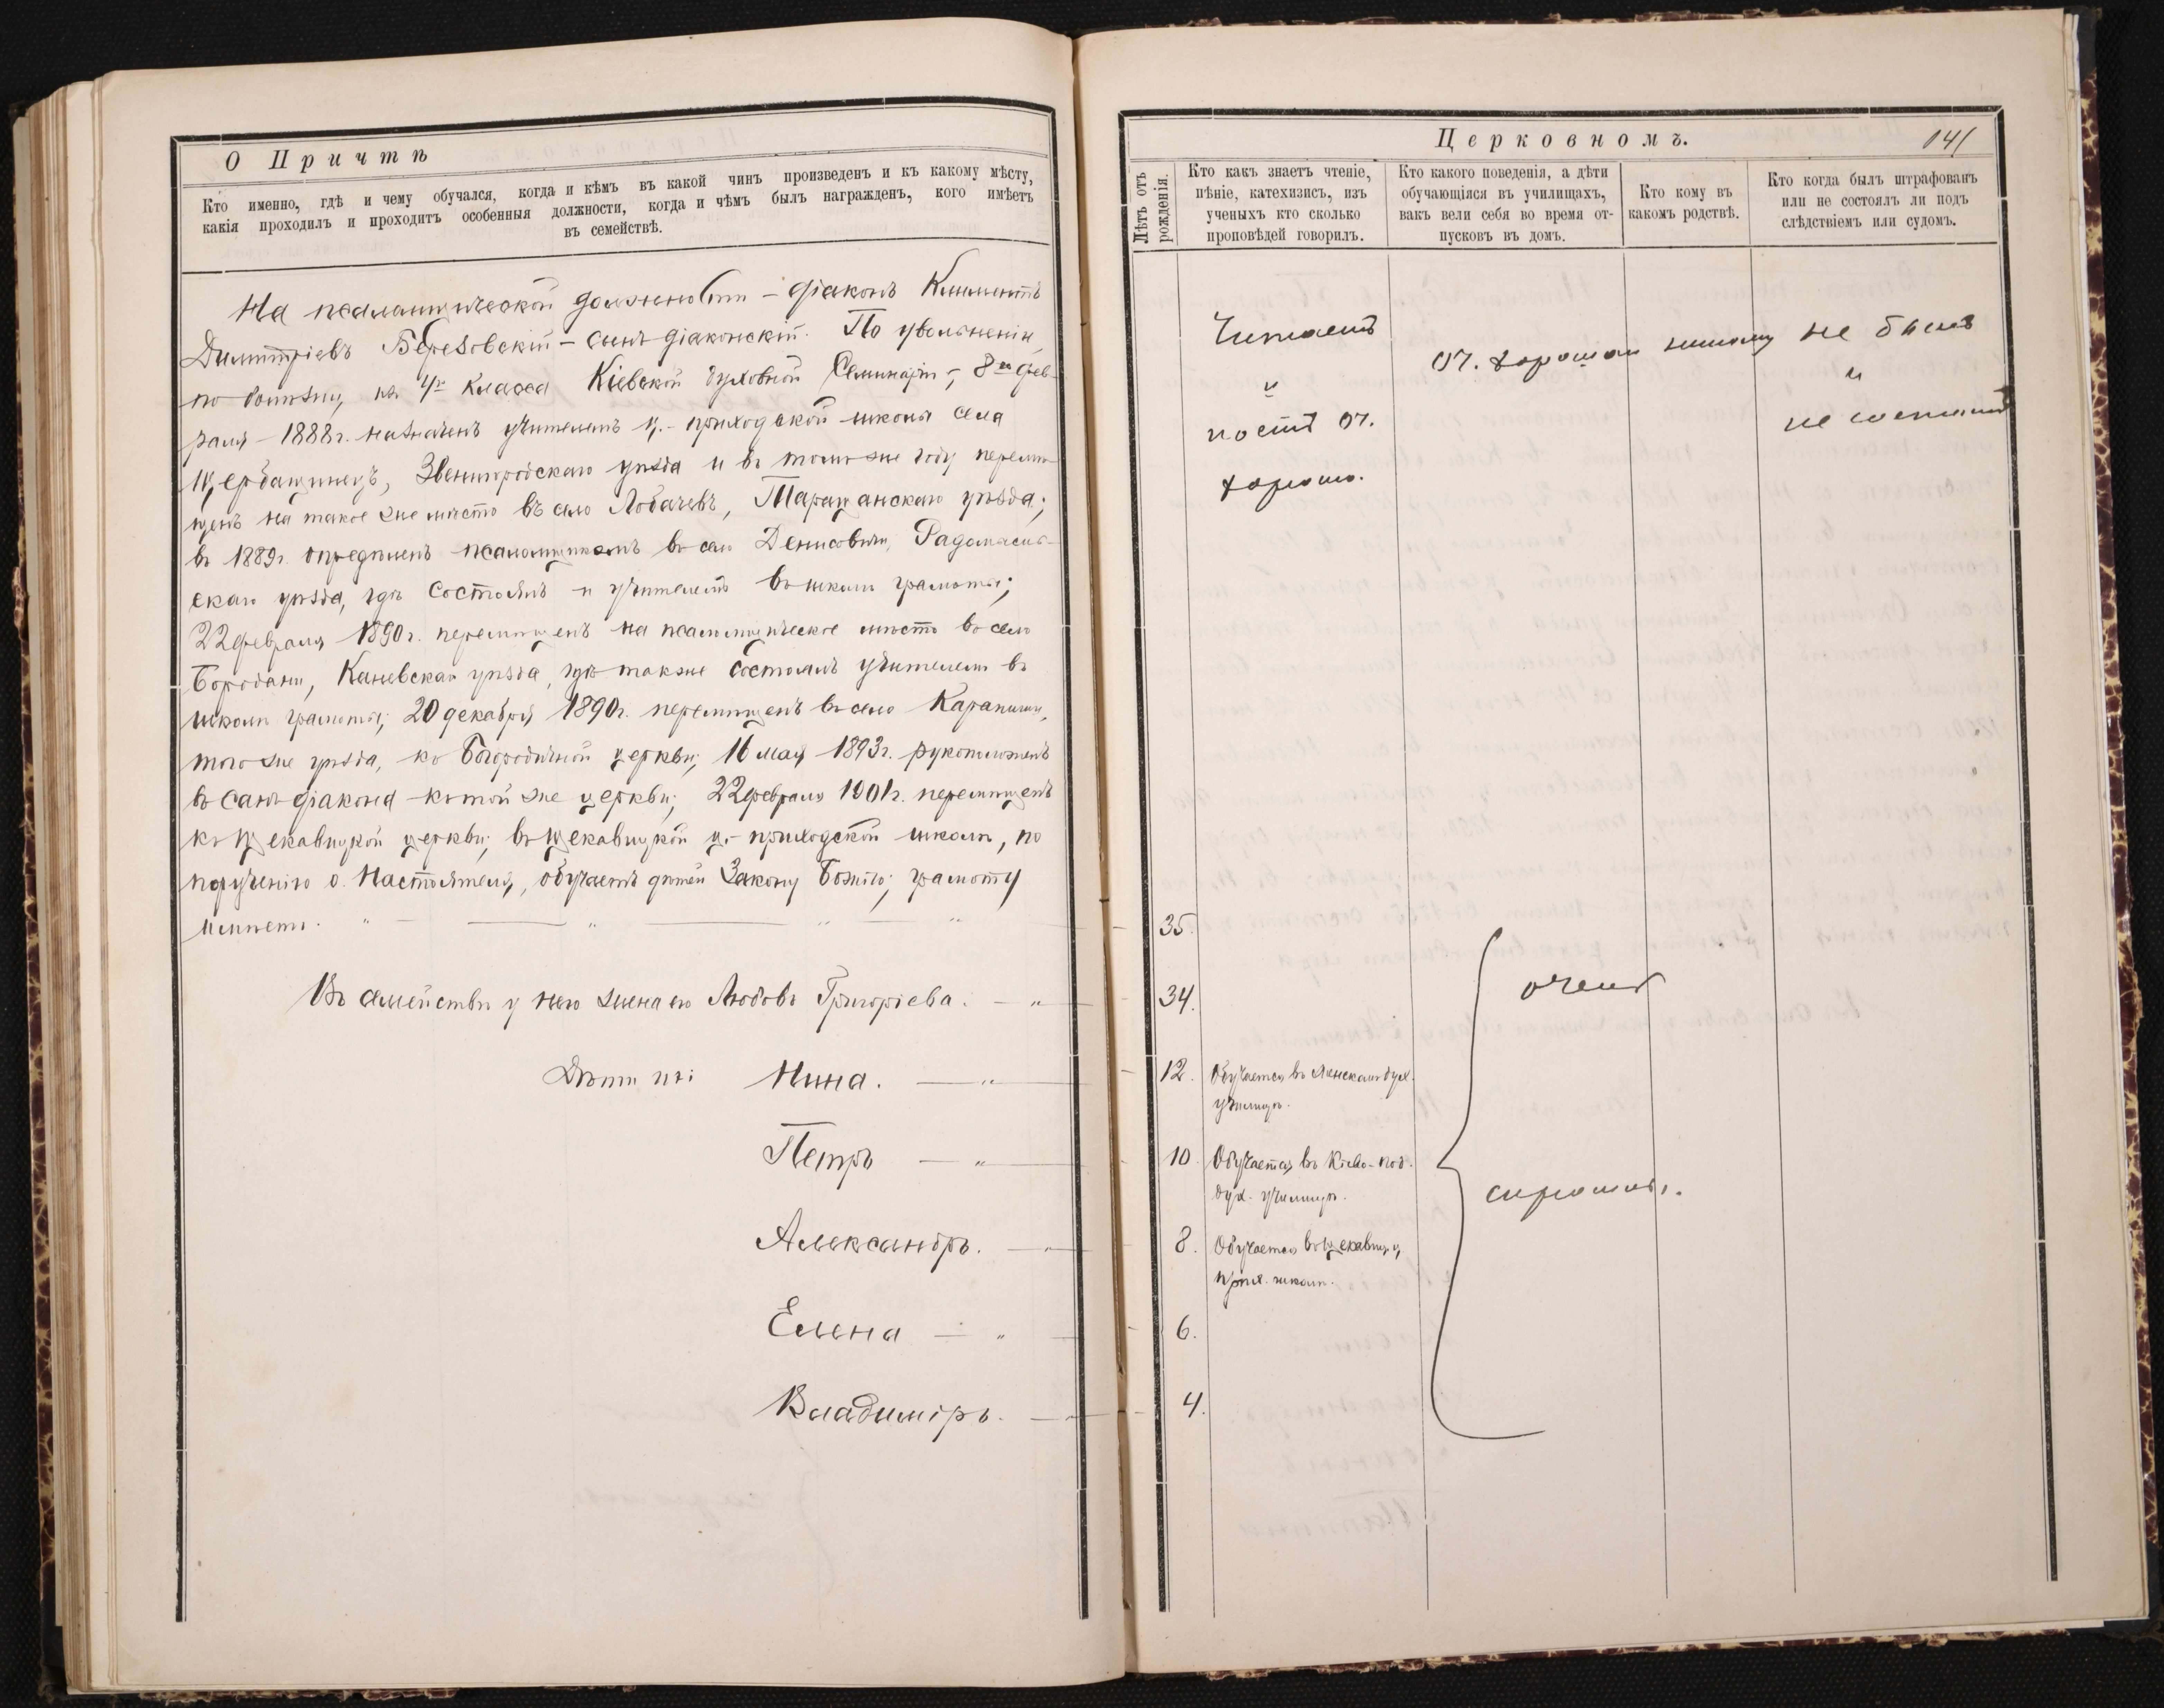 О Причтѣ
Кто именно, гдѣ и чему обучался, когда и кѣмъ въ какой чинъ произведенъ и къ какому мѣсту,
какія проходилъ и проходитъ особенныя должности, когда и чѣмъ былъ награжденъ, кого имѣетъ
въ семействѣ.
На псаломщической должности – діаконъ Климентъ
Димитріевъ Березовскій – сынъ діаконскій. По увольненіи,
по болѣзни, изъ 4го класса Кіевской духовной Семинаріи, 8го фев-
раля 1888 г. назначенъ учителемъ ц.-приходской школы села
Щербашинецъ, Звенигородскаго уѣзда и въ томъ же году перемѣ-
щенъ на такое же мѣсто въ село Лобачевъ, Таращанскаго уѣзда;
въ 1889 г. опредѣленъ псаломщикомъ въ село Денисовичи, Радомысль-
скаго уѣзда, гдѣ состоялъ и учителемъ въ школѣ грамоты;
22 февраля 1890 г. перемѣщенъ на псаломщическое мѣсто въ село
Бородани, Каневскаго уѣзда, гдѣ также состоялъ учителемъ въ
школѣ грамоты; 20 декабря 1890 г. перемѣщенъ въ село Карапиши,
того же уѣзда, ко Богородичной церкви; 16 мая 1893 г. рукоположенъ
въ санъ діакона къ той же церкви; 22 февраля 1901 г. перемѣщенъ
къ Щекавицкой церкви; въ Щекавицкой ц.-приходской школѣ, по
порученію о. Настоятеля, обучаетъ дѣтей Закону Божію; грамоту
имѣетъ. " — " — " — "
Въ семействѣ у него жена его Любовь Григоріева. — "
Дѣти ихъ: Нина. — "
Петръ — "
Александръ. — "
Елена — "
Владиміръ. — "
Церковномъ. 141
Лѣтъ отъ рожденія.
Кто какъ знаетъ чтеніе,
пѣніе, катехизисъ, изъ
ученыхъ кто сколько
проповѣдей говорилъ.
Кто какого поведенія, а дѣти
обучающіяся въ училищахъ,
какъ вели себя во время от-
пусковъ въ домъ.
Кто кому въ
какомъ родствѣ.
Кто когда былъ штрафованъ
или не состоялъ ли подъ
слѣдствіемъ или судомъ.
Читаетъ
и
поетъ оч.
хорошо.
оч. хорошаго
никому
не былъ
и
не состоитъ
35.
34.
12. Обучается въ Женскомъ дух.
училищѣ.
10. Обучается въ Кіево-Под.
дух. училищѣ.
8. Обучается въ Щекавиц. ц.
прих. школѣ.
6.
4.
очень
скромны.